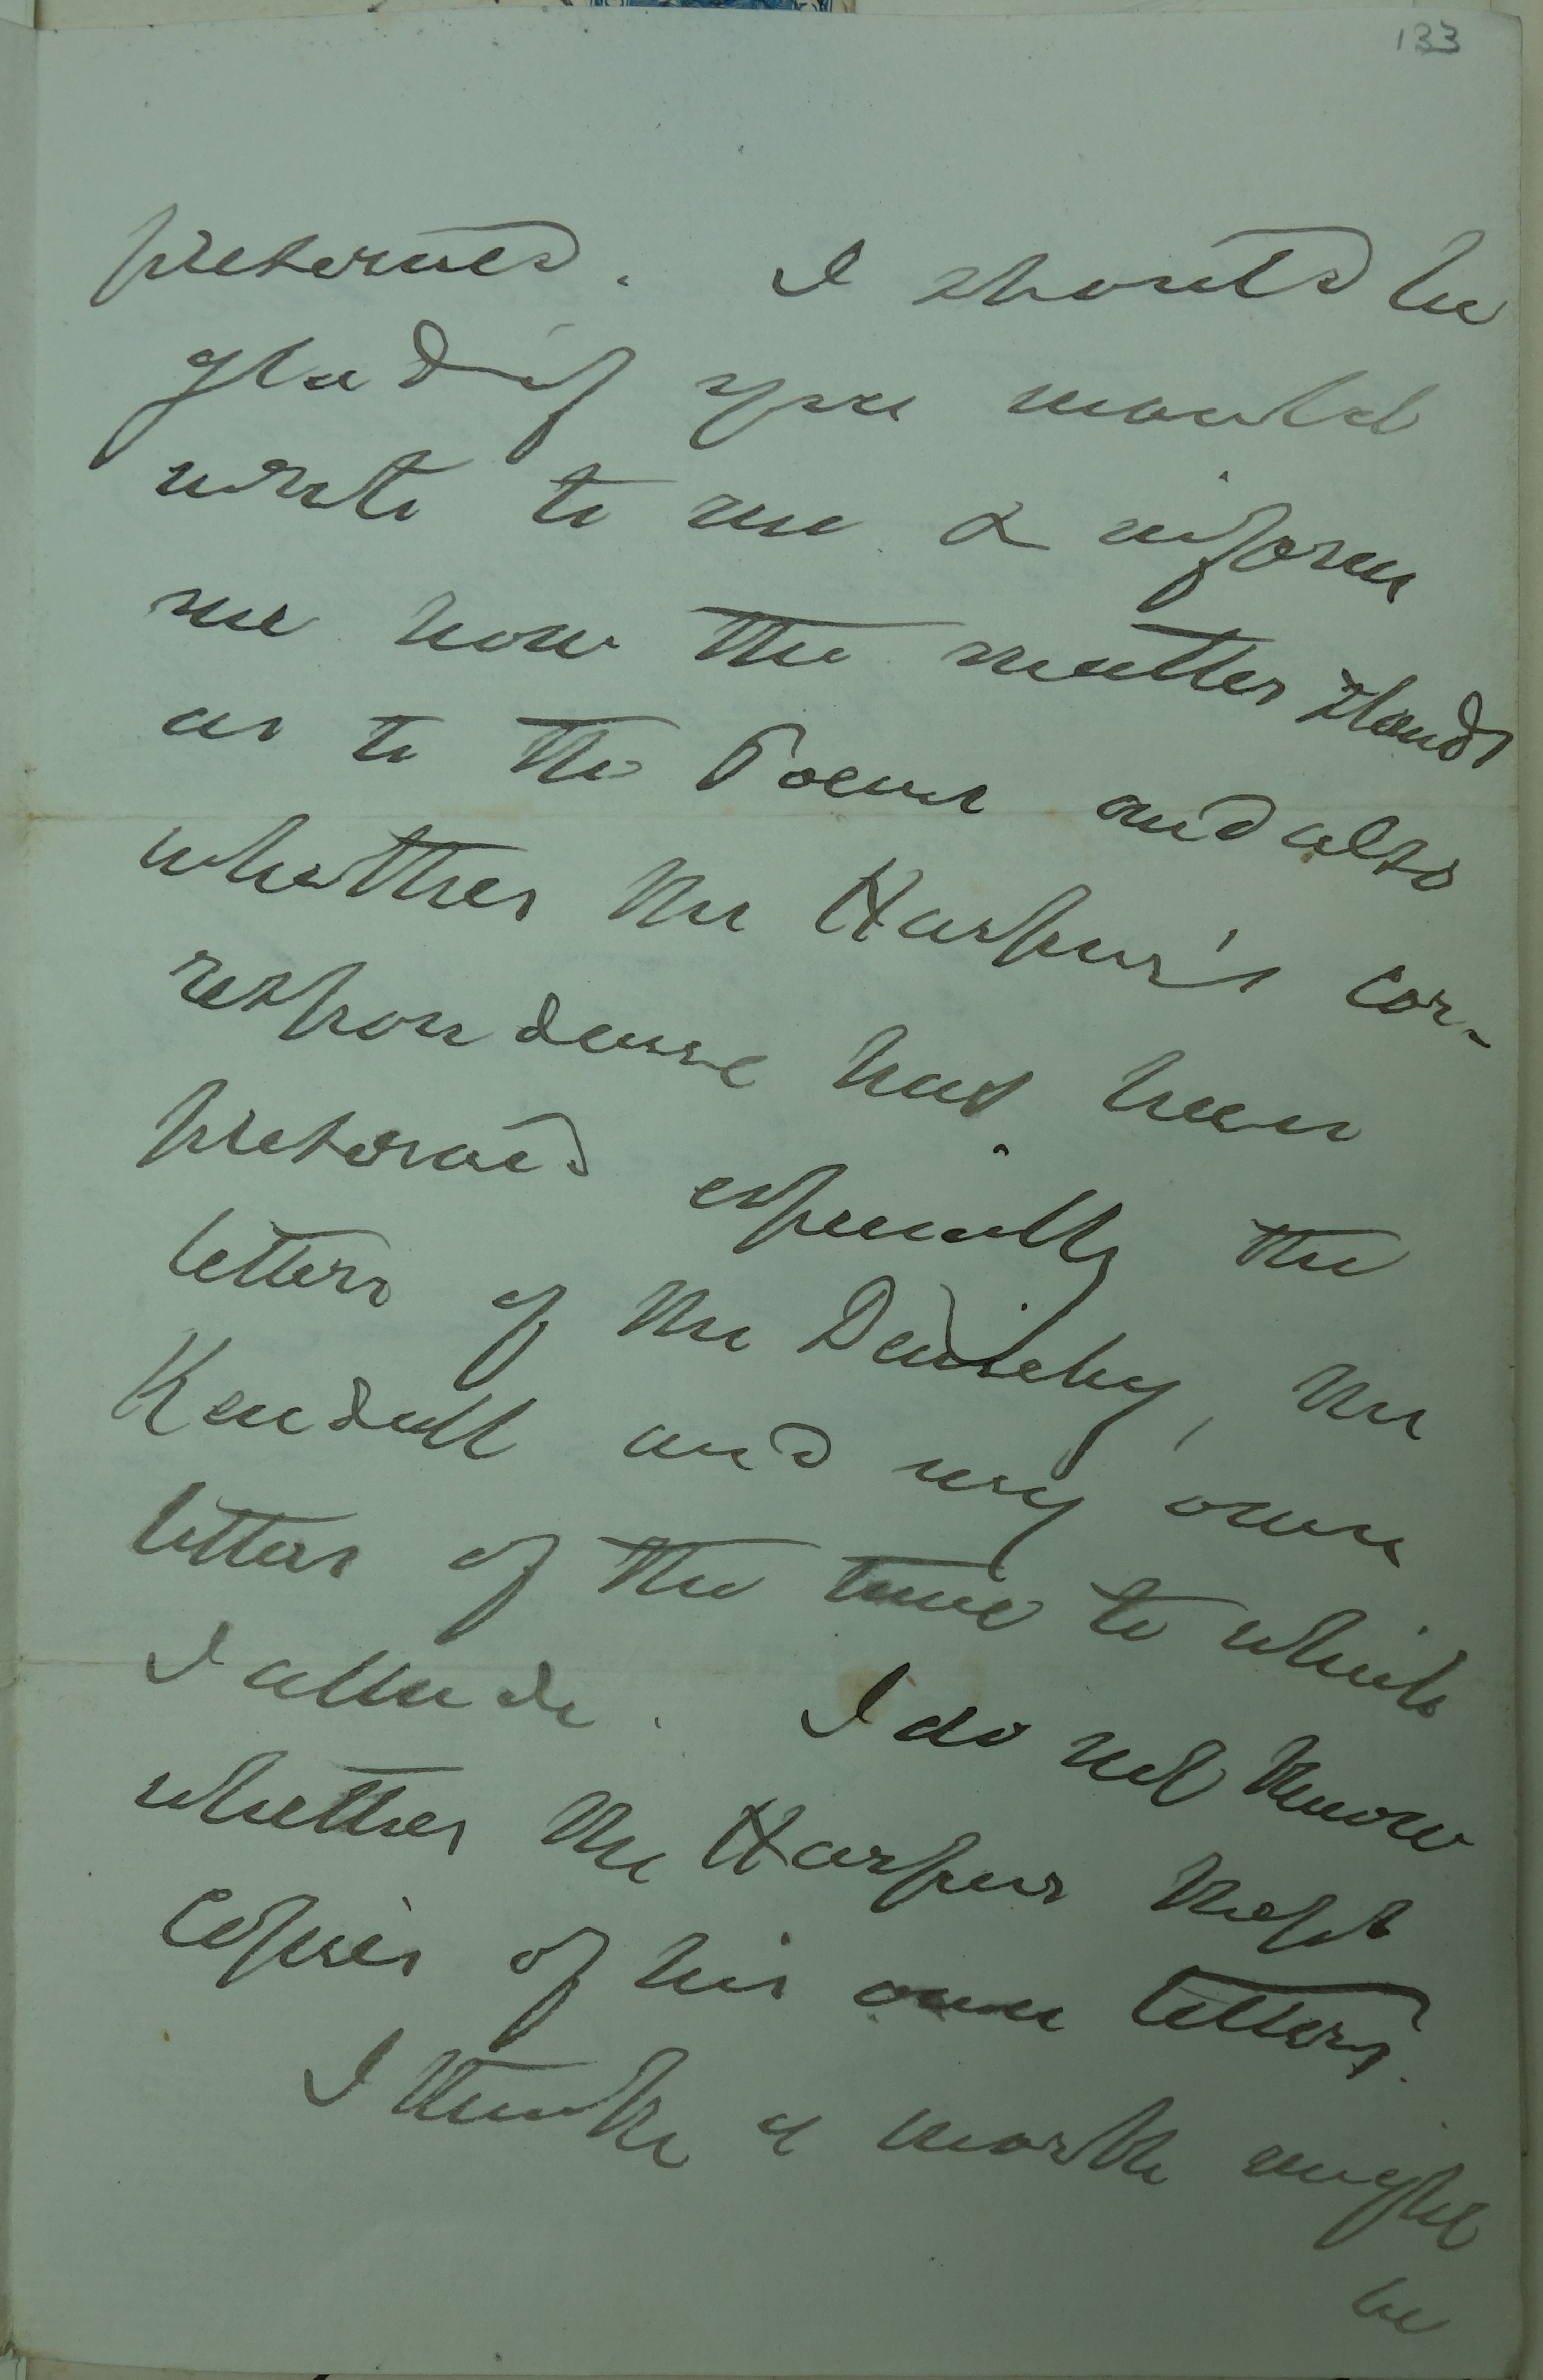 133
preserved. I should be
glad if you would
write to me & inform
me how the matter stands
as to the Poems and also
whether Mr Harpur's cor-
respondence has been
preserved especially the
letters of Mr Deniehy, Mr
Kendall and my own
letters of the time to which
I allude. I do not know
whether Mr Harpur kept
copies of his own letters.
I think a work might
be